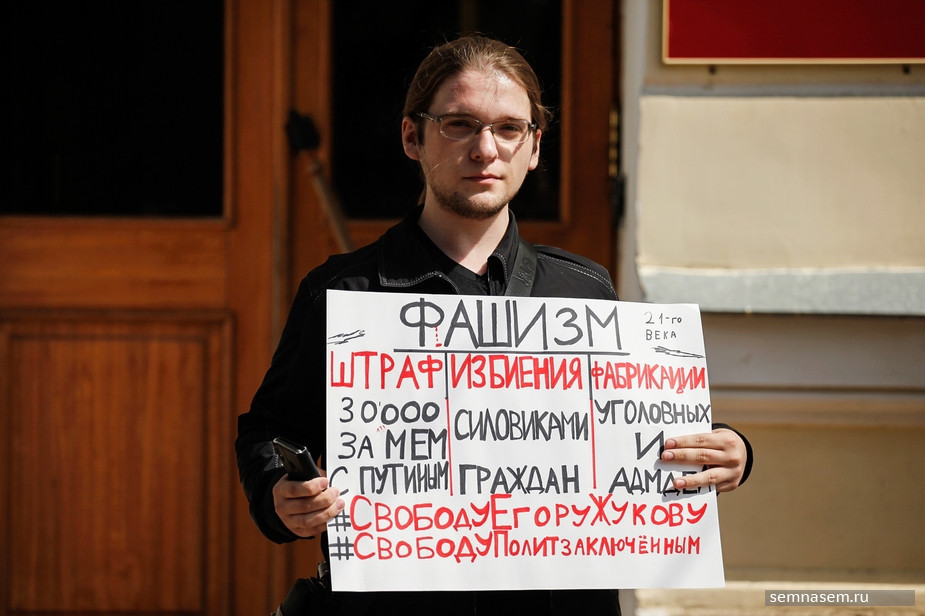 ФАШИЗМ
21-го
ВЕКА
ШТРАФ
30'000
ЗА МЕМ
С ПУТИНЫМ
ИЗБИЕНИЯ
СИЛОВИКАМИ
ГРАЖДАН
ФАБРИКАЦИИ
УГОЛОВНЫХ
И
АДМДЕЛ
#СВОБОДУЕГОРУЖУКОВУ
#СВОБОДУПОЛИТЗАКЛЮЧЁННЫМ
semnasem.ru